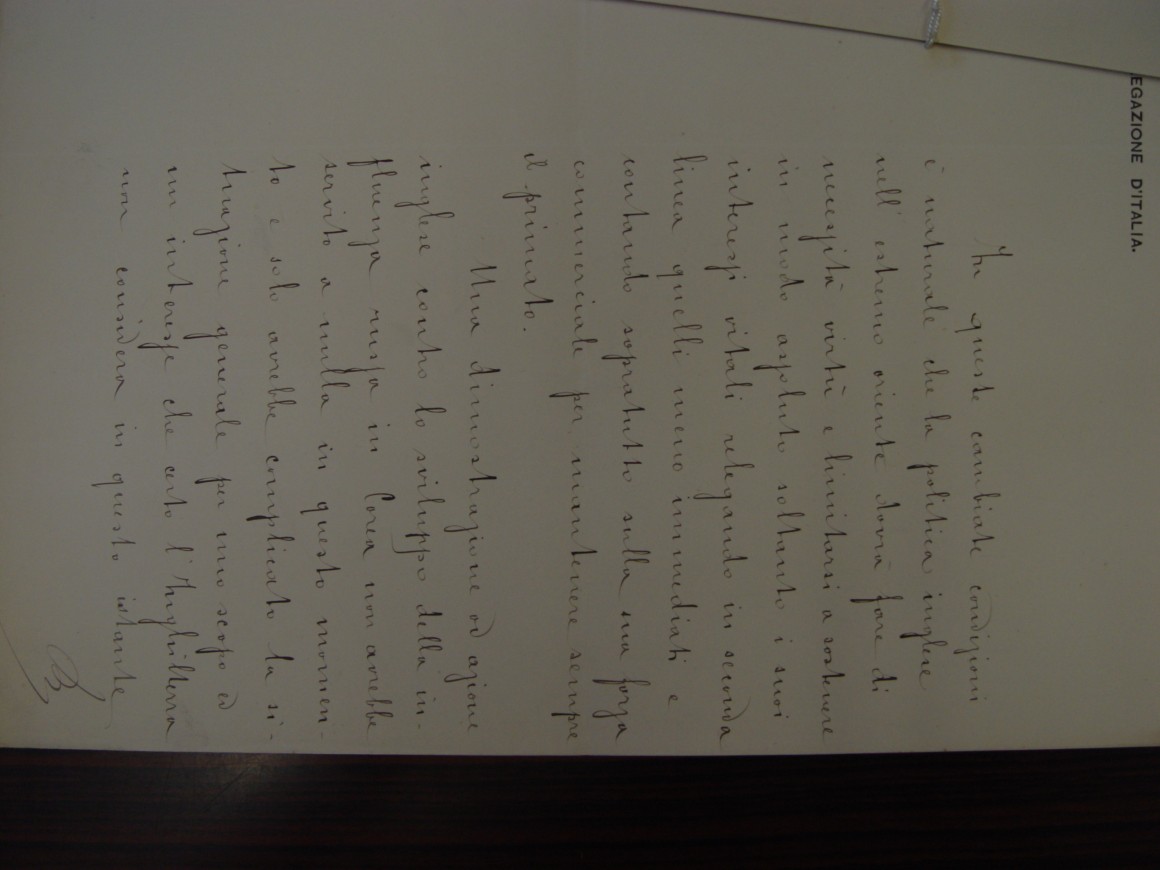 EGAZIONE D'ITALIA.
In queste cambiate condizioni
è naturale che la politica inglese
nell'estremo oriente dovrà fare di
necessità virtù e limitarsi a sostenere
in modo assoluto soltanto i suoi
interessi vitali relegando in seconda
linea quelli meno immediati e
contando sopratutto sulla sua forza
commerciale per mantenere sempre
il primato.
Una dimostrazione od azione
inglese contro lo sviluppo della in-
fluenza russa in Corea non avrebbe
servito a nulla in questo momen-
to e solo avrebbe complicato la si-
tuazione generale per uno scopo ed
un interesse che certo l'Inghilterra
non considera in questo istante